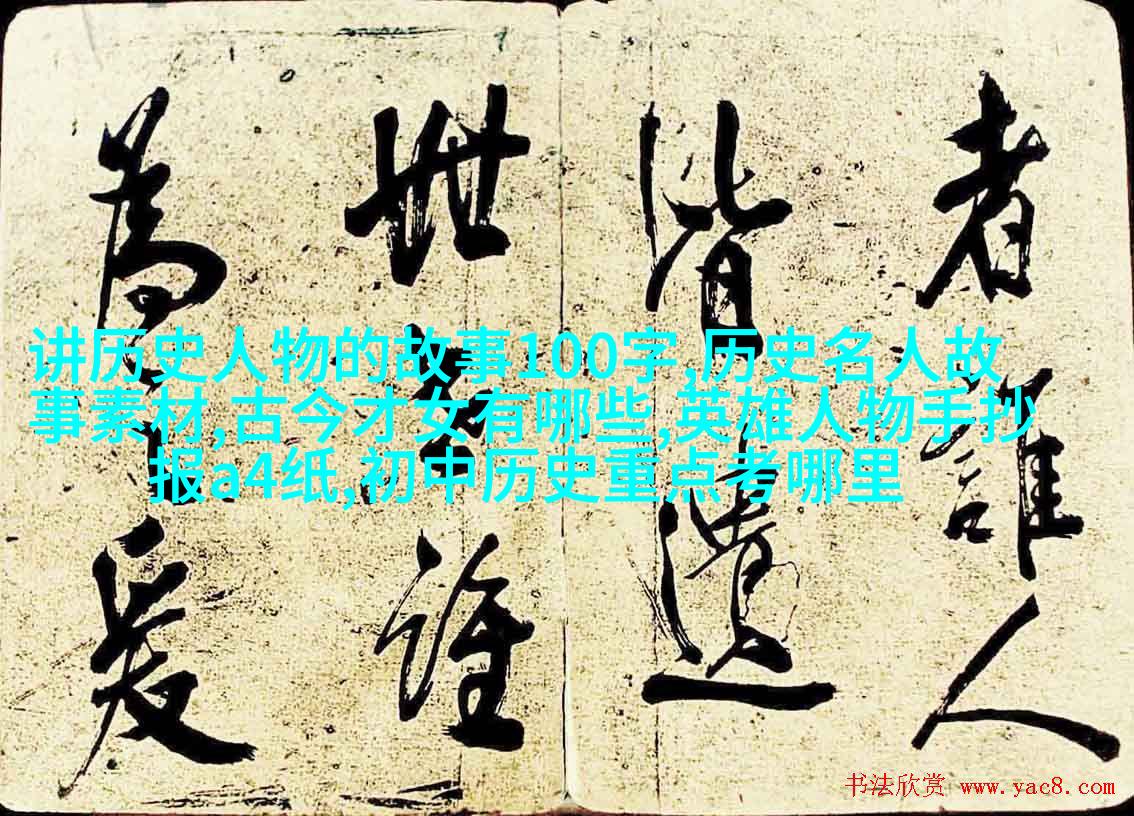 者誰人
皆遺
世誰
為爰
讲历史人物的故事100字,历史名人故
事素材,古今才女有哪些,英雄人物手抄
报a4纸,初中历史重点考哪里
书法欣赏 www.yac8.com